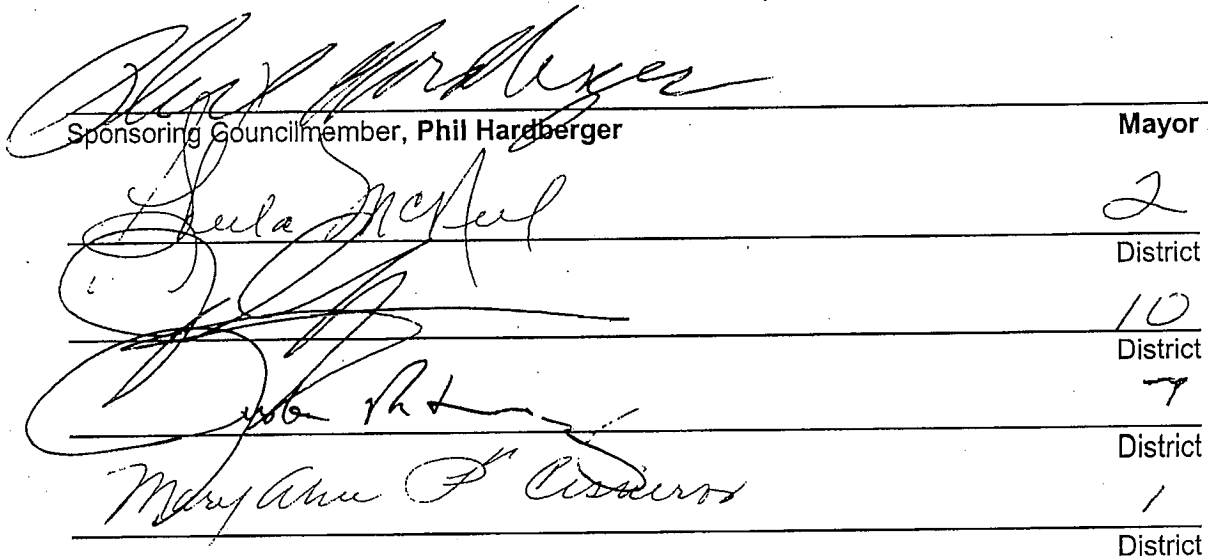 Phil Hardberger
Sponsoring Councilmember, Phil Hardberger Mayor
Sheila McNeil 2
District
10
District
7
District
Mary Alice P. Cisneros 1
District